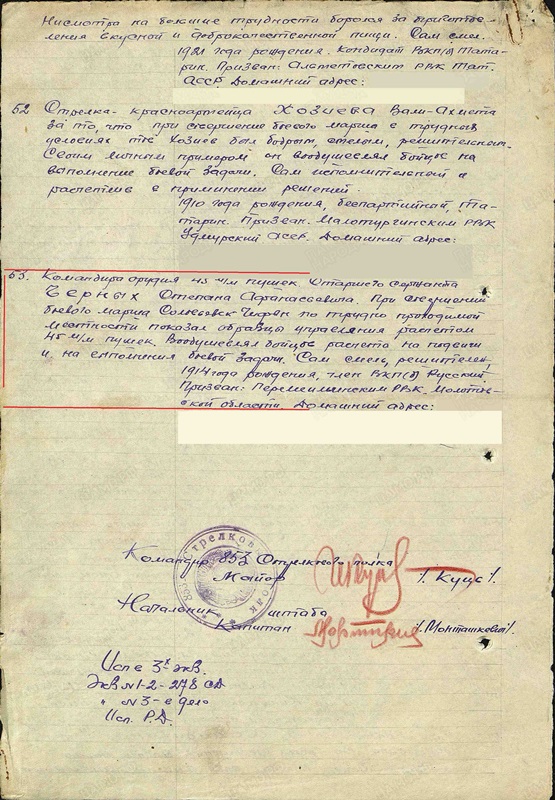 Несмотря на большие трудности боролся за приготов-
ления вкусной и доброкачественной пищи. Сам смел.
1921 года рождения. Кандидат ВКП(б) Тата-
рин. Призван: Альметевским РВК Тат.
АССР. Домашний адрес:
52 Стрелка - красноармейца Хозиева Вали-Ахмета
за то, что при совершение боевого марша в трудных
условиях тов Хозиев был бодрым, смелым, решительным.
Своим личным примером он воодушевлял бойцов на
выполнение боевой задачи. Сам исполнительный и
в решений.
1910 года рождения, беспартийный, Та-
тарин. Призван. Малопургинским РВК
Удмурский АССР. Домашний адрес:
53. Командира орудия 45 м/м пушек Старшего Сержанта
Черных Степана Афанасьевича. При совершений
боевого марша по трудно проходимой
местности показал образцы управления расчетом
45 м/м пушек. Воодушевлял бойцов расчета на подвиги
и на боевой задачи. Сам смел, решителен.
1914 года рождения, член ВКП(б) Русский.
Призван: РВК. Молотов-
ской области. Домашний адрес:
Командир 853 Стрелкового полка
Майор / Куцс /.
Начальник штаба
Капитан / Монташкевич /.
Исп в 3х экз.
Экз N 1-2 - 278 СД
" N 3 - в дело
Исп. Р.Д.